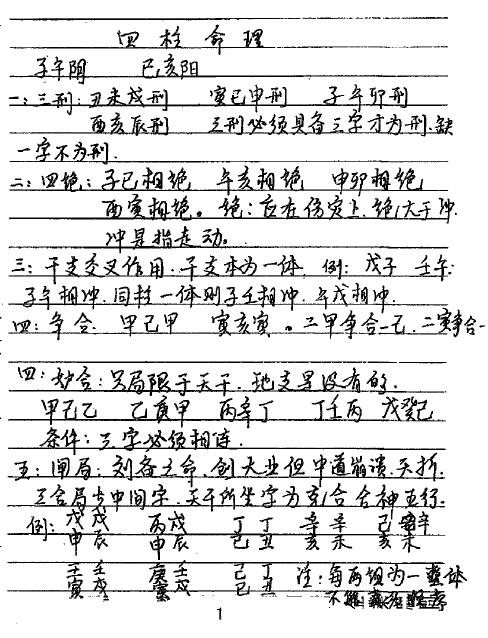 四柱命理
子午阴 己亥阳
一:三刑:丑未戌刑 寅巳申刑 子午卯刑
酉亥辰刑 三刑必须具备三字才为刑.缺
一字不为刑.
二:四绝:子巳相绝 午亥相绝 申卯相绝
酉寅相绝。绝:应在伤定上.绝大于冲.
冲是指走动。
三:干支交叉作用.干支本为一体.例:戊子 壬午.
子午相冲.同柱一体则子壬相冲.午戊相冲.
四:争合.甲己甲 寅亥寅。二甲争合一己.二寅争合一
四:妒合:只局限于天干.地支是没有的.
甲己乙 乙庚甲 丙辛丁 丁壬丙 戊癸己
条件:三字必须相连.
五:闸局:刘备之命.创大业但中道崩溃.夭折.
三合局少中间字.天干所坐字为玄合合神五行.
例:戊戊 丙戊 丁丁 辛辛 己辛
申辰 申辰 巳丑 亥未 亥未
壬壬 庚壬 己丁 注:每两组为一整体
寅戌 寅戌 巳丑
1